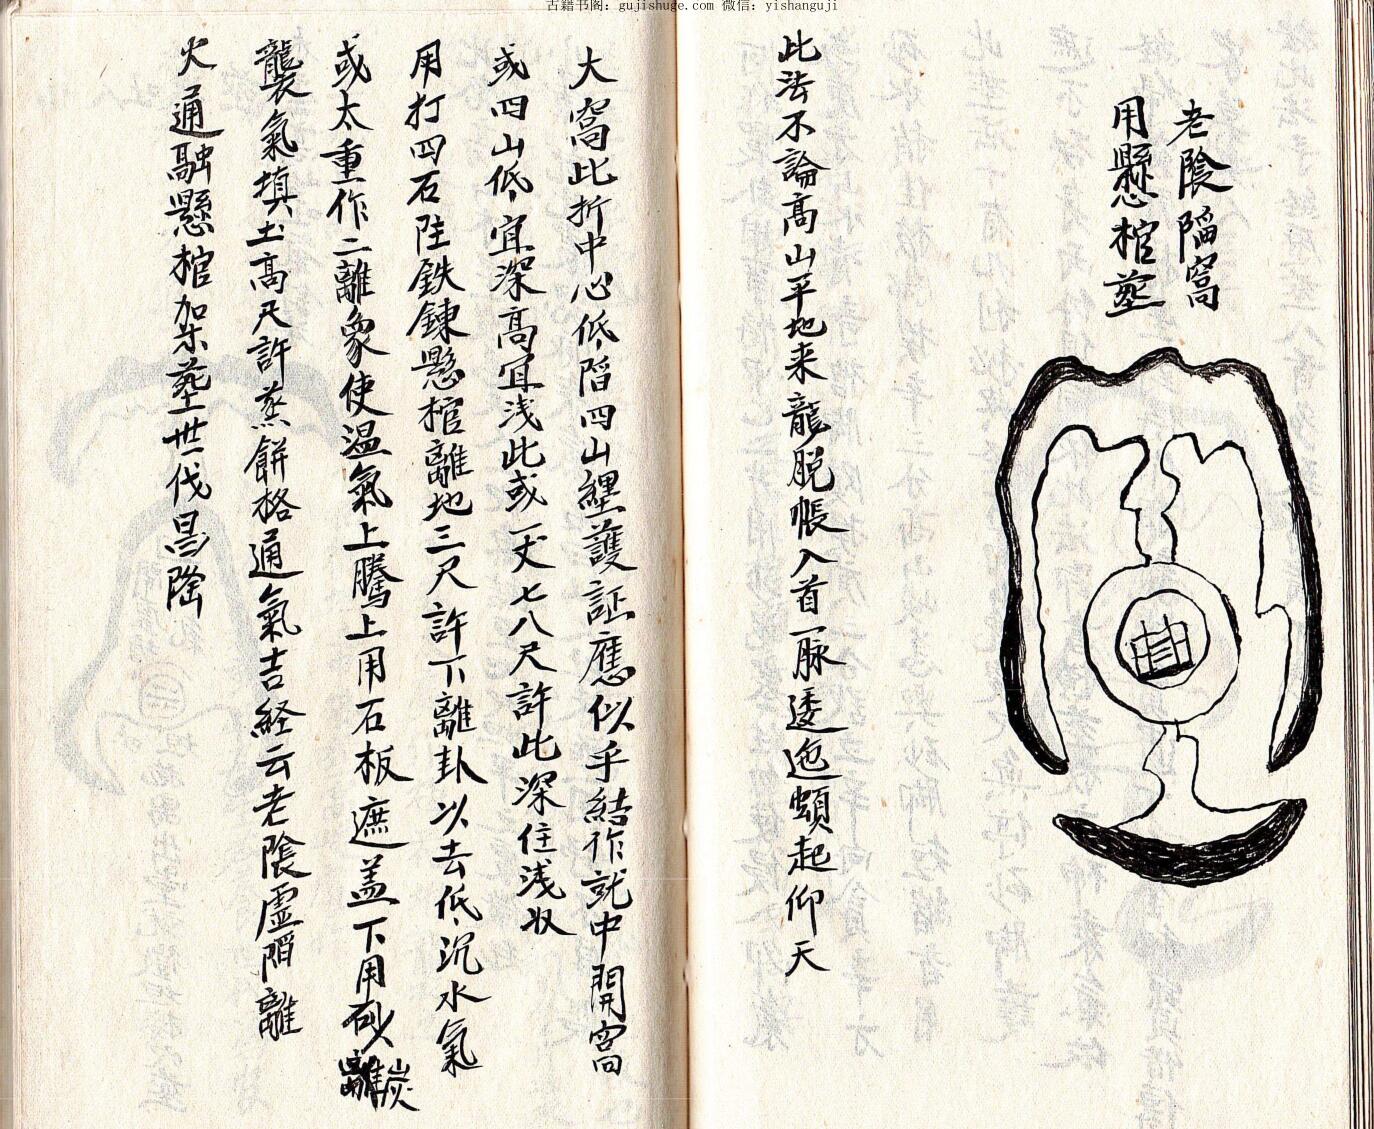 古籍书阁：gujishuge.com 微信：yishanguji
老陰陷窩
用懸棺葬
此法不論髙山平地来龍脱帳入首一脉逶迤頓起仰天
大窩此折中心低陷四山纏護証應似乎結作就中開窩
或四山低宜深髙宜浅此或一丈七八尺許此深住浅収
用打四石陡鉄鍊懸棺離地三尺許下離卦以去低沉水氣
或太重作二離象使温氣上騰上用石板遮盖下用砂炭
襲氣填土髙尺許蒸餅格通氣吉経云老陰虚陷離
火通融懸棺加木葬世代昌隆